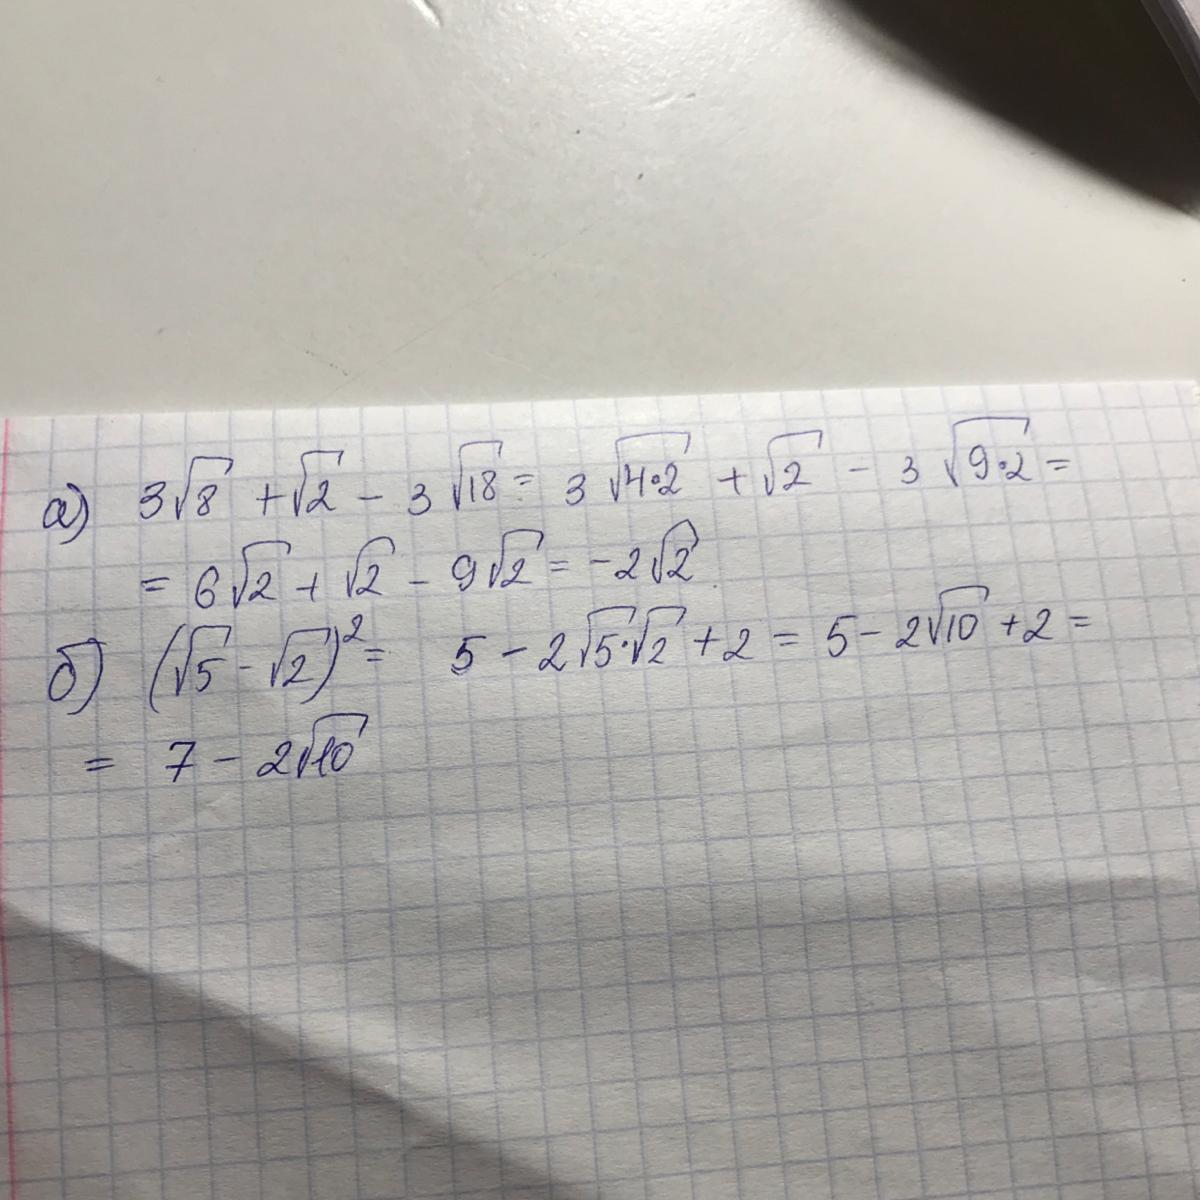 а) 3√8 + √2 - 3√18 = 3√4·2 + √2 - 3√9·2 =
= 6√2 + √2 - 9√2 = -2√2
б) (√5 - √2)² = 5 - 2√5·√2 + 2 = 5 - 2√10 + 2 =
= 7 - 2√10